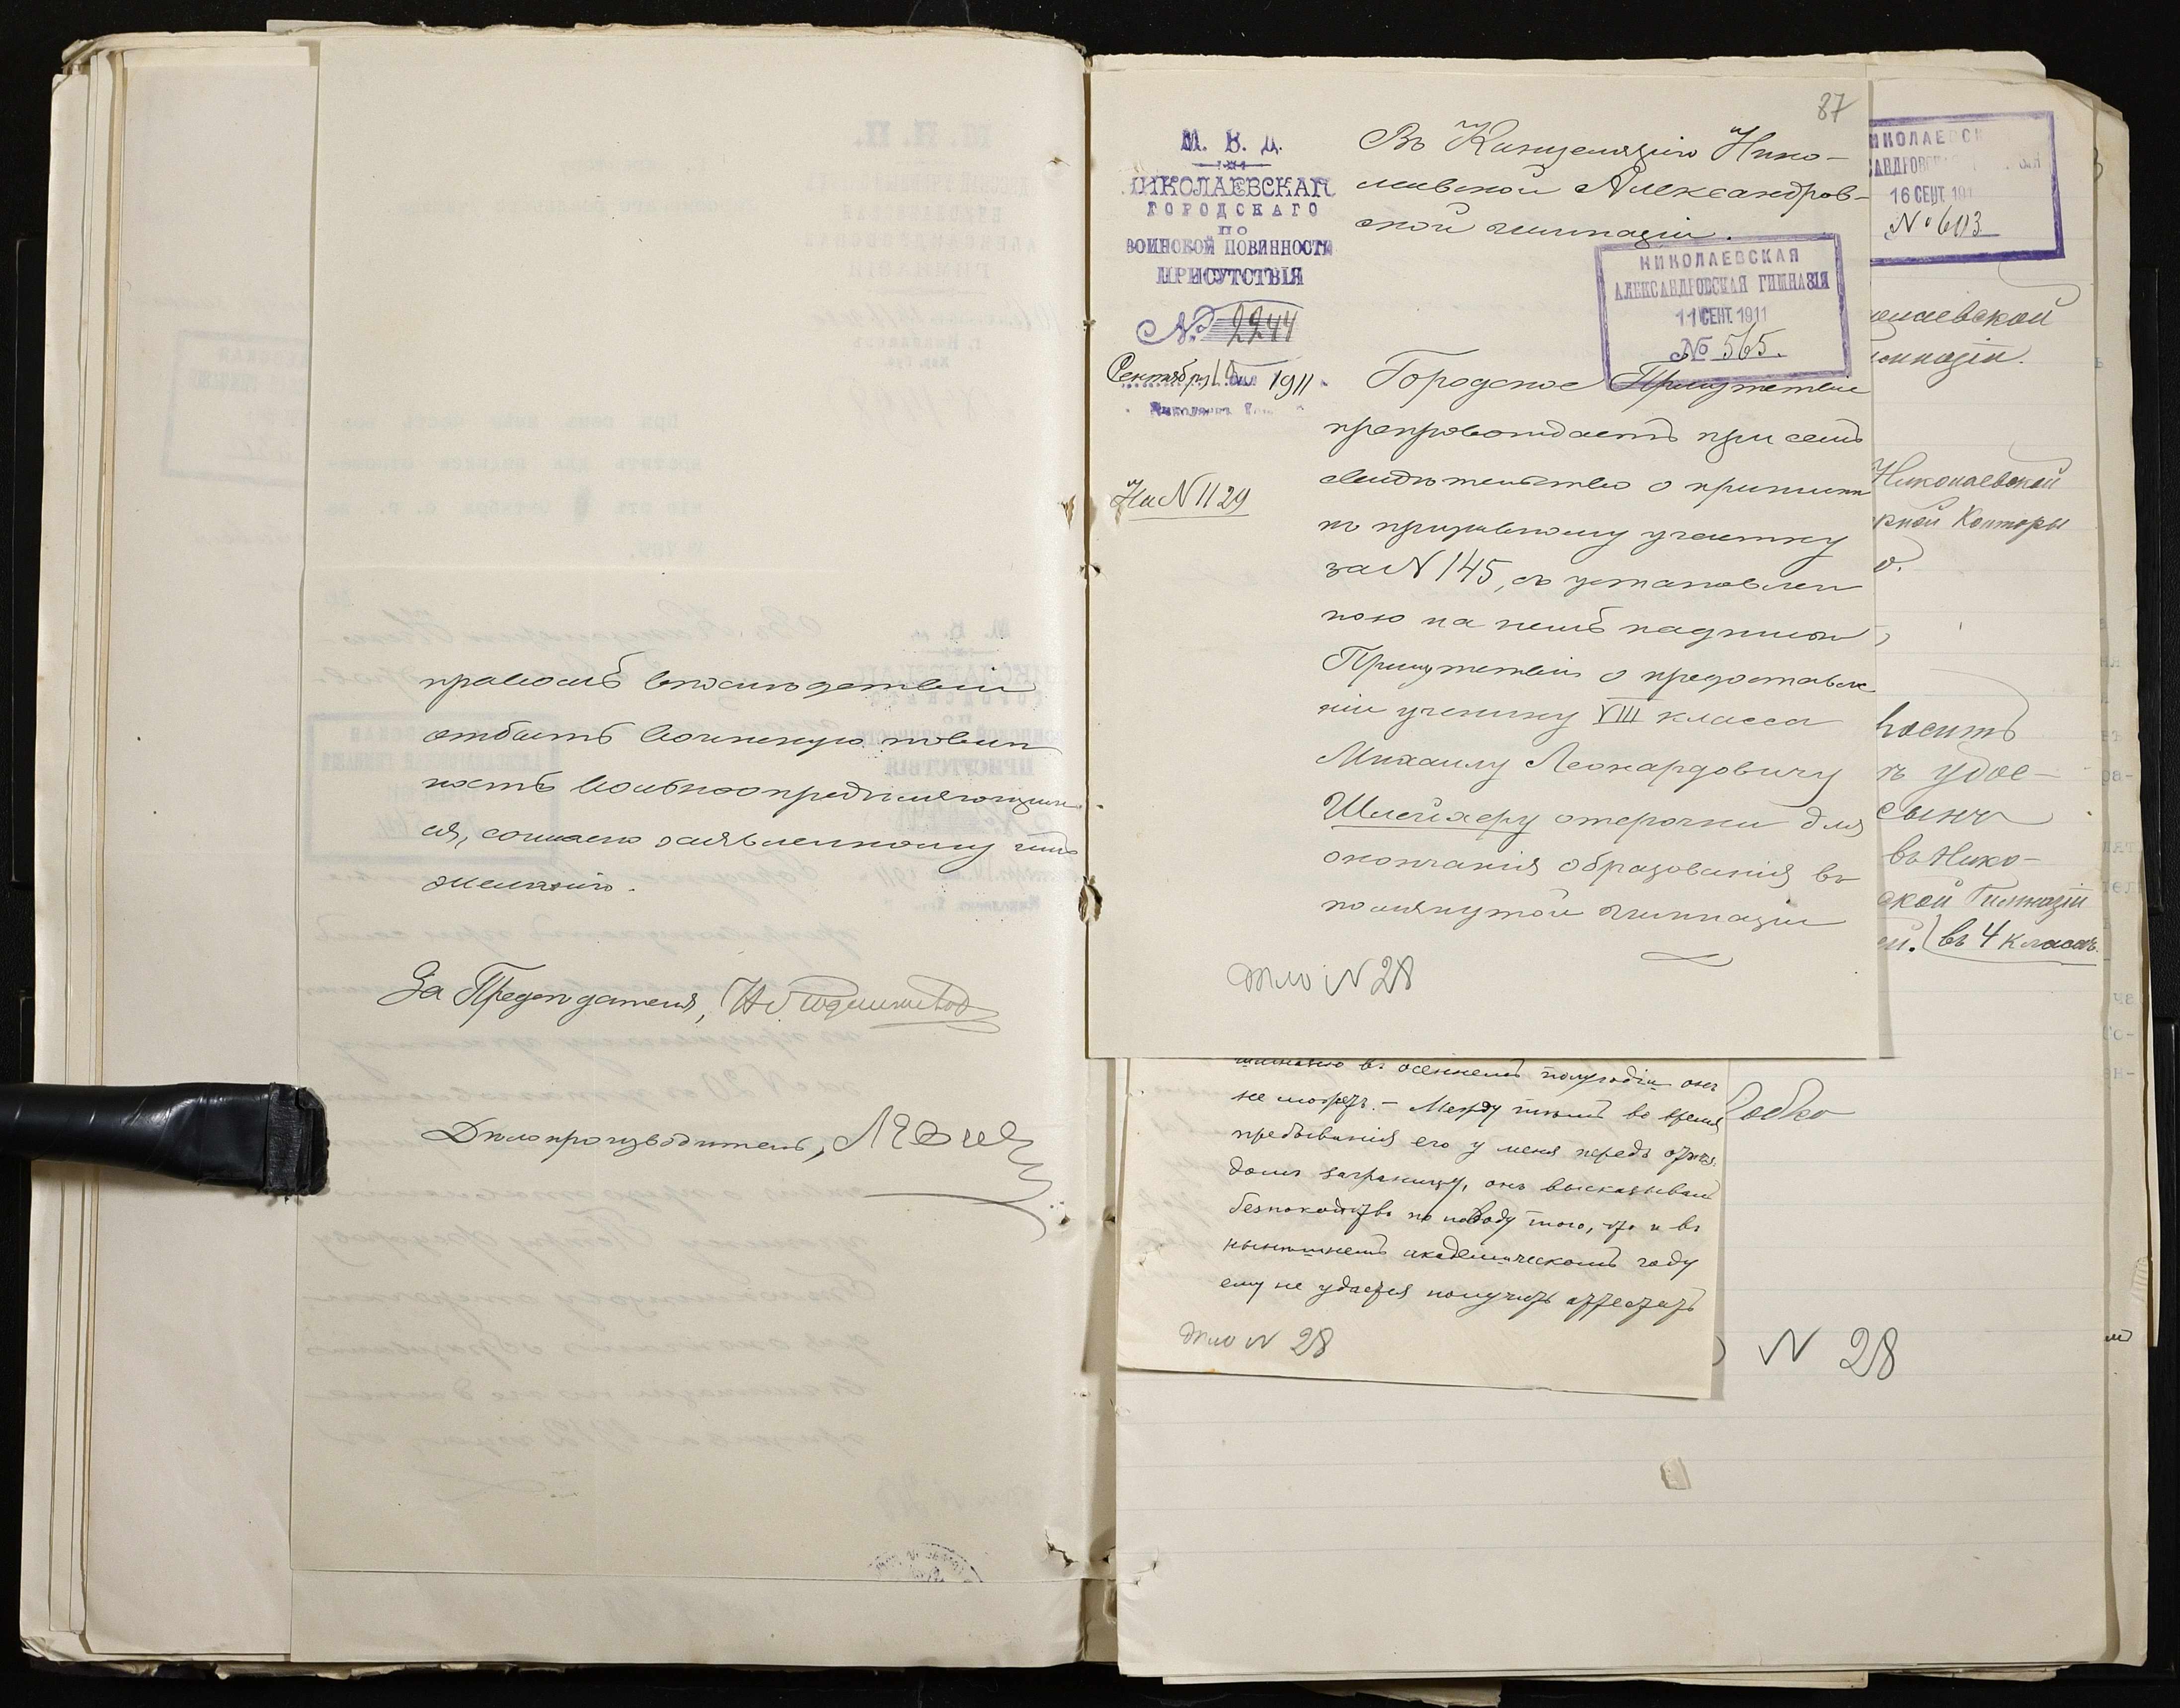 правомъ впослѣдствіи
отбыть воинскую повин
ность вольноопредѣляющим
ся, согласно заявленному имъ
желанію.
За Предсѣдателя,
Дѣлопроизводитель,
87
М. В. Д.
НИКОЛАЕВСКАГО
ГОРОДСКАГО
ПО
ВОИНСКОЙ ПОВИННОСТИ
ПРИСУТСТВІЯ
№ 2244
Сентября 10 дня 1911
На N 1129
Въ Канцелярію Нико-
лаевской Александров-
ской гимназіи.
НИКОЛАЕВСКАЯ
АЛЕКСАНДРОВСКАЯ ГИМНАЗІЯ
11 СЕНТ. 1911
№ 565.
Городское Присутствіе
препровождаетъ при семъ
свидѣтельство о припискѣ
къ призывному участку
за N 145, съ установлен
ною на немъ надписью
Присутствія о предоставле
ніи ученику VIII класса
Михаилу Леонардовичу
Шлейхеру отсрочки для
окончанія образованія въ
помянутой гимназіи
дѣло N 28
НИКОЛАЕВСК
САНДРОВС
16 СЕНТ. 191
№ 603
олаевской
имназіи.
Николаевской
рной Конторы
носитъ
ъ удос-
сына
въ Нико-
ской Гимназіи
въ 4 классъ.
въ осеннемъ полугодіи онъ
не можетъ. – Между тѣмъ во время
пребыванія его у меня передъ отъѣз
домъ заграницу, онъ высказывалъ
безпокойство по поводу того, что и въ
нынѣшнемъ академическомъ году
ему не удастся получить аттестатъ
дѣло N 28
N 28